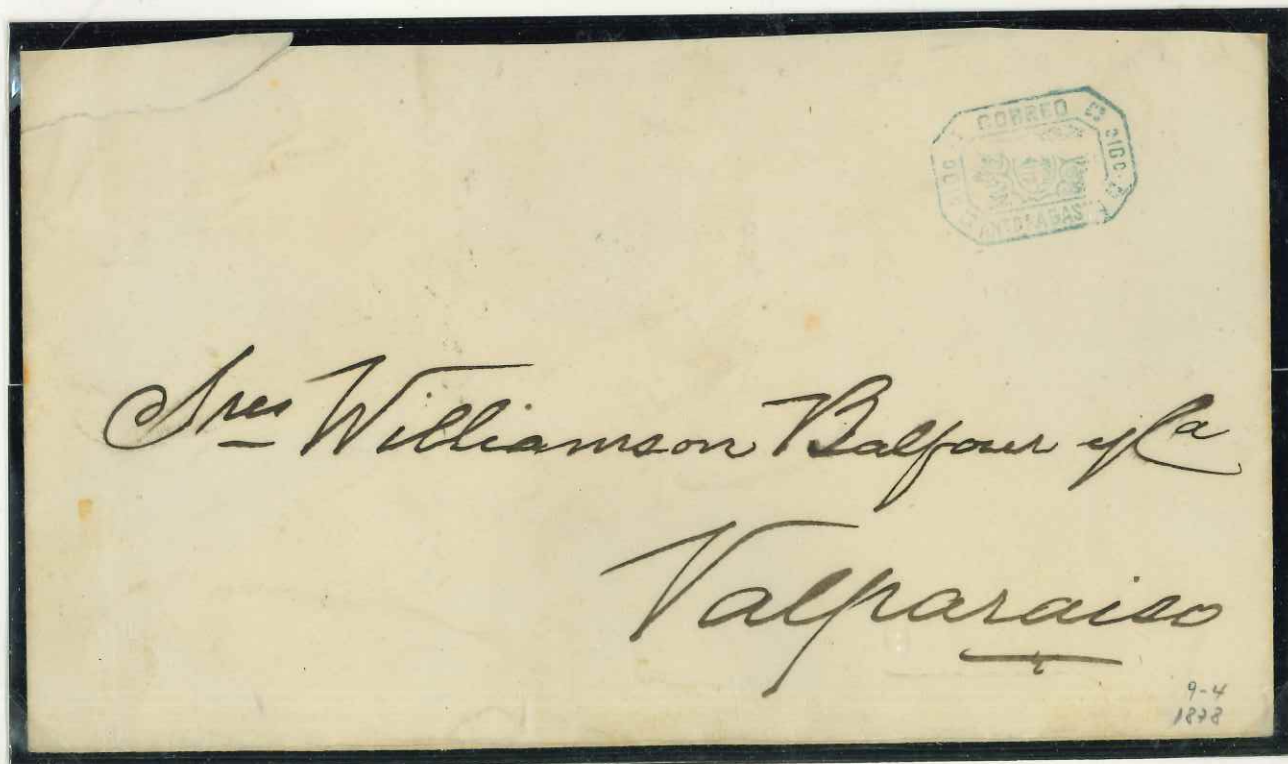 CORREO
ANTOFAGASTA
Sres Williamson Balfour y Ca
Valparaiso
9-4
1878